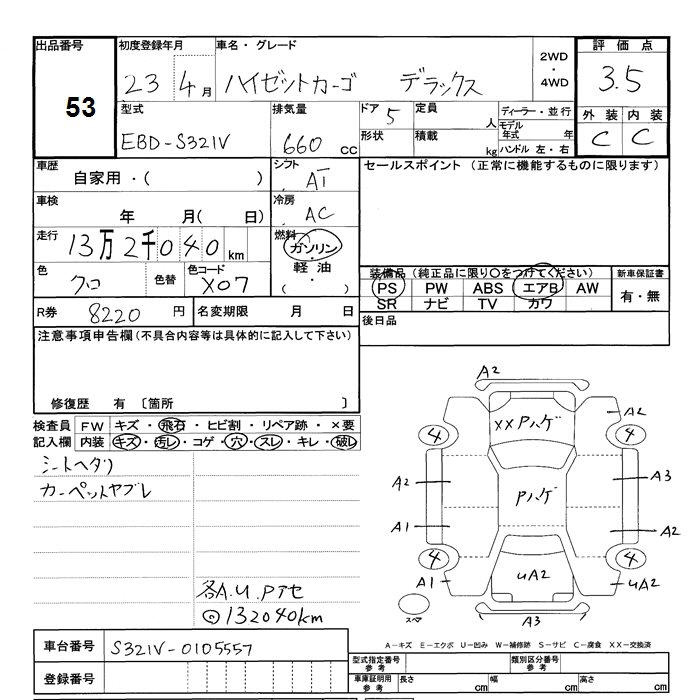 出品番号 初度登録年月 車名・グレード 2WD・4WD 評価点
53 23 4月 ハイゼットカーゴ デラックス 3.5
型式 排気量 ドア 5 定員 人 ディーラー・並行 外装 内装
EBD-S321V 660 cc 形状 積載 kg モデル年式 年 ハンドル 左・右 C C
車歴 シフト セールスポイント (正常に機能するものに限ります)
自家用・( ) AT
車検 年 月( 日) 冷房 AC
走行 13万2千040km 燃料 ガソリン・軽油
色 クロ 色替 色コード X07
装備品 (純正品に限り○をつけてください) 新車保証書
PS PW ABS エアB AW 有・無
SR ナビ TV カワ
R券 8220 円 名変期限 月 日 後日品
注意事項申告欄(不具合内容等は具体的に記入して下さい)
修復歴 有 〔箇所 〕
検査員 FW キズ・飛石・ヒビ割・リペア跡・×要
記入欄 内装 キズ・汚レ・コゲ・穴・スレ・キレ・破レ
シートヘタリ
カーペットヤブレ
各A.U.Pアセ
132040km
A2
XXPハゲ A2
4 4
A2 Pハゲ A3
A1 A2
4 4
A1 UA2 UA2
スペア A3
A-キズ E-エクボ U-凹み W-補修跡 S-サビ C-腐食 XX-交換済
車台番号 S321V-0105557
型式指定番号 参考 類別区分番号 参考
登録番号 車庫証明用 参考 長さ cm 幅 cm 高さ cm